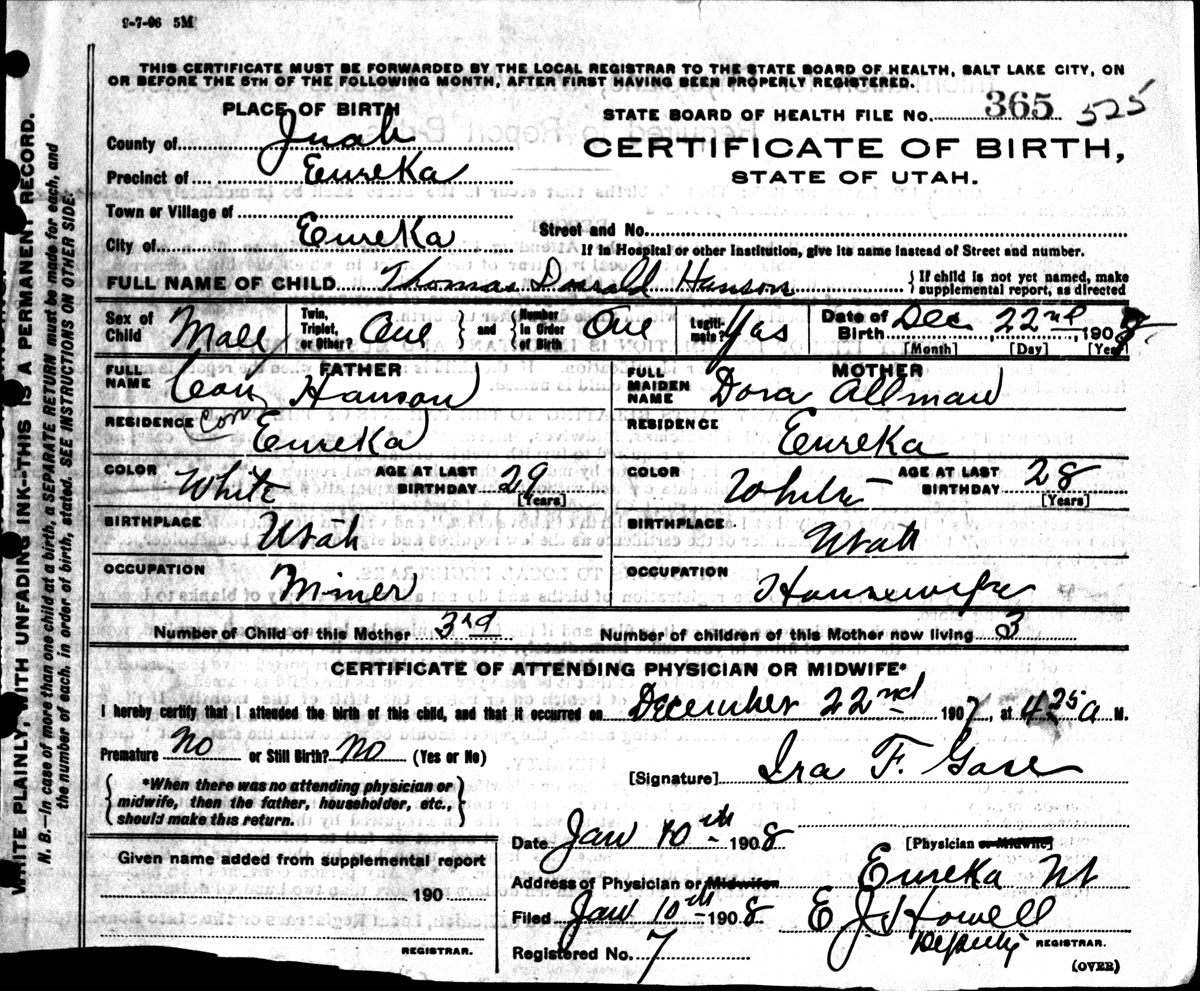 9-7-06 5M
THIS CERTIFICATE MUST BE FORWARDED BY THE LOCAL REGISTRAR TO THE STATE BOARD OF HEALTH, SALT LAKE CITY, ON
OR BEFORE THE 5TH OF THE FOLLOWING MONTH, AFTER FIRST HAVING BEEN PROPERLY REGISTERED.
PLACE OF BIRTH
STATE BOARD OF HEALTH FILE NO. 365 525
County of Juab
CERTIFICATE OF BIRTH,
Precinct of Eureka
STATE OF UTAH.
Town or Village of
Street and No.
City of Eureka
If in Hospital or other Institution, give its name instead of Street and number.
FULL NAME OF CHILD Thomas Donald Hanson
If child is not yet named, make
supplemental report, as directed
Sex of Child Male Twin, Triplet, or Other? One and Number in Order of Birth One Legitimate? Yas Date of Birth Dec 22nd, 190
[Month] [Day] [Year]
FATHER
FULL NAME Hanson
MOTHER
FULL MAIDEN NAME Dora Allman
RESIDENCE Con Eureka
RESIDENCE Eureka
COLOR White AGE AT LAST BIRTHDAY 29 [Years]
COLOR White AGE AT LAST BIRTHDAY 28 [Years]
BIRTHPLACE Utah
BIRTHPLACE Utah
OCCUPATION Miner
OCCUPATION Housewife
Number of Child of this Mother 3rd
Number of children of this Mother now living 3
CERTIFICATE OF ATTENDING PHYSICIAN OR MIDWIFE*
I hereby certify that I attended the birth of this child, and that it occurred on December 22nd 1907, at 4 25 a M.
Premature No or Still Birth? No (Yes or No)
[Signature] Ira F.
*When there was no attending physician or
midwife, then the father, householder, etc.,
should make this return.
Date Jan 10th 1908
[Physician or Midwife]
Given name added from supplemental report
190
REGISTRAR.
Address of Physician or Midwife Eureka Ut
Filed Jan 10th 1908 E J Howell
Deputy REGISTRAR.
Registered No. 7
(OVER)
WRITE PLAINLY, WITH UNFADING INK--THIS IS A PERMANENT RECORD.
N. B.—In case of more than one child at a birth, a SEPARATE RETURN must be made for each, and
the number of each, in order of birth, stated. SEE INSTRUCTIONS ON OTHER SIDE.